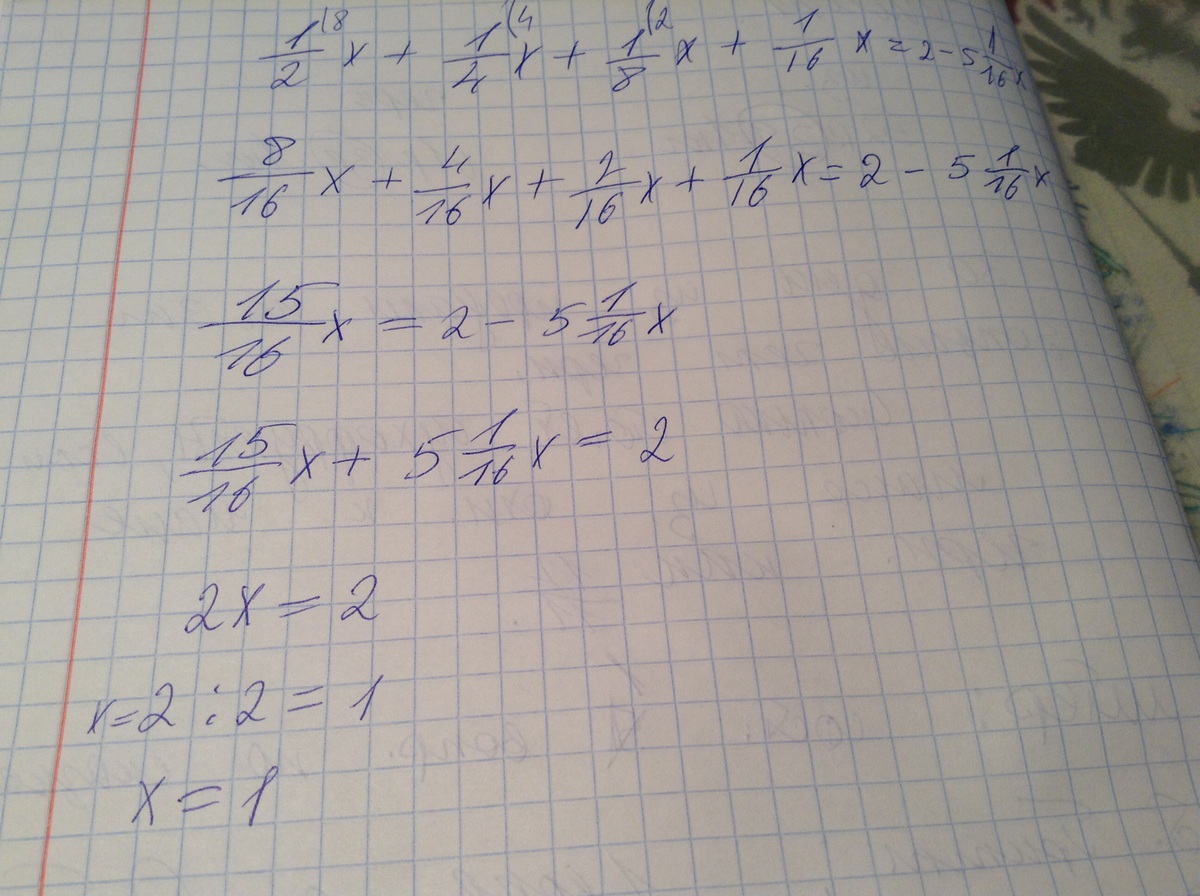 1/2(8 x + 1/4(4 x + 1/8(2 x + 1/16 x = 2 - 5 1/16 x
8/16 x + 4/16 x + 2/16 x + 1/16 x = 2 - 5 1/16 x
15/16 x = 2 - 5 1/16 x
15/16 x + 5 1/16 x = 2
2x = 2
x = 2 : 2 = 1
x = 1